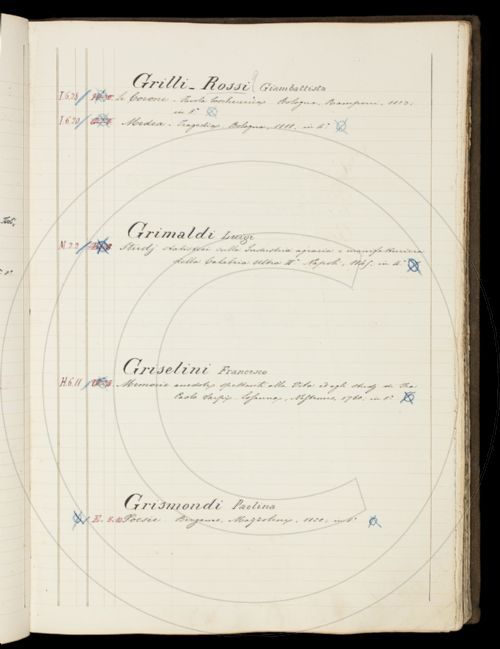 Gritti-Rossi Giambattista
I.6.28 Le Corone. Bologna, 1813.
in 8°
I.6.20 Medea. Tragedia. Bologna, 1811. in 4°
Grimaldi Luigi
M.2.2 Studj statistici sulla Industria agraria e manifatturiera
della Calabria Ultra IIª Napoli, 1845. in 4°
Griselini Francesco
H.6.11 Memorie anedote spettanti alla Vita ed agli studj di Fra
Paolo Sarpi. Losanna, Nestenus, 1760. in 8°
Grismondi Paolina
Poesie. Bergamo, Mazzoleni, 1820. in 8°